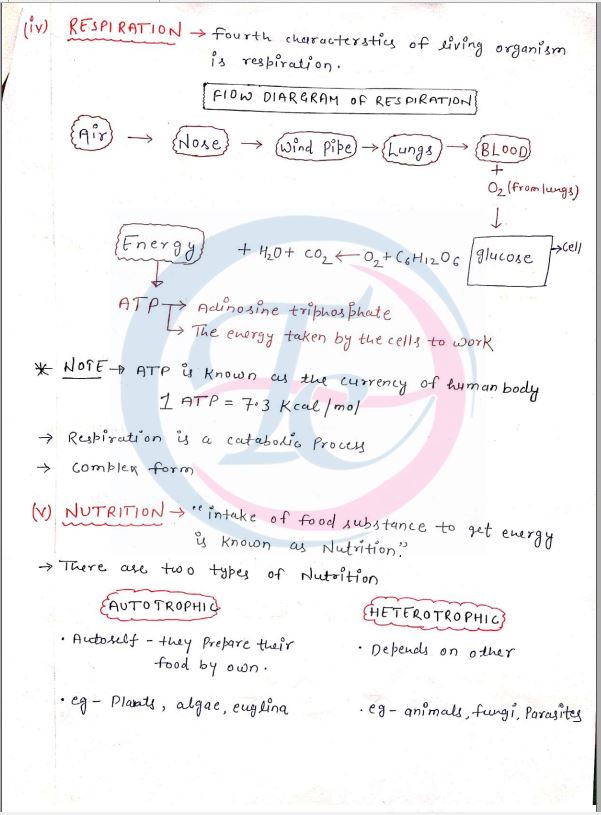 (iv) RESPIRATION → fourth characterstics of living organism
is respiration.
FlOW DIARGRAM OF RESPIRATION
Air → Nose → Wind Pipe → Lungs → BLOOD
+
O2 (from lungs)
↓
Energy + H2O + CO2 ← O2 + C6H12O6 glucose → cell
ATP → Adinosine triphosphate
→ The energy taken by the cells to work
* NOTE → ATP is known as the currency of human body
1 ATP = 7.3 Kcal/mol
→ Respiration is a catabolic Process
→ Complex form
(v) NUTRITION → "intake of food substance to get energy
is known as Nutrition."
→ There are two types of Nutrition
AUTOTROPHIC HETEROTROPHIC
• Autoself - they Prepare their
food by own.
• Depends on other
• eg - Plants, algae, euglina
• eg - animals, fungi, Parasites
Tc